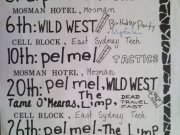 MOSMAN HOTEL, Mosman
6th: WILD WEST Birthday Party
CELL BLOCK, East Sydney Tech
10th: pel mel TACTICS
MOSMAN HOTEL, Mosman
20th: pel mel, WILD WEST
The Limp, DEAD TRAVEL FAST
Tame O'Mearas,
CELL BLOCK, East Sydney Tech
26th: pel mel - The Limp